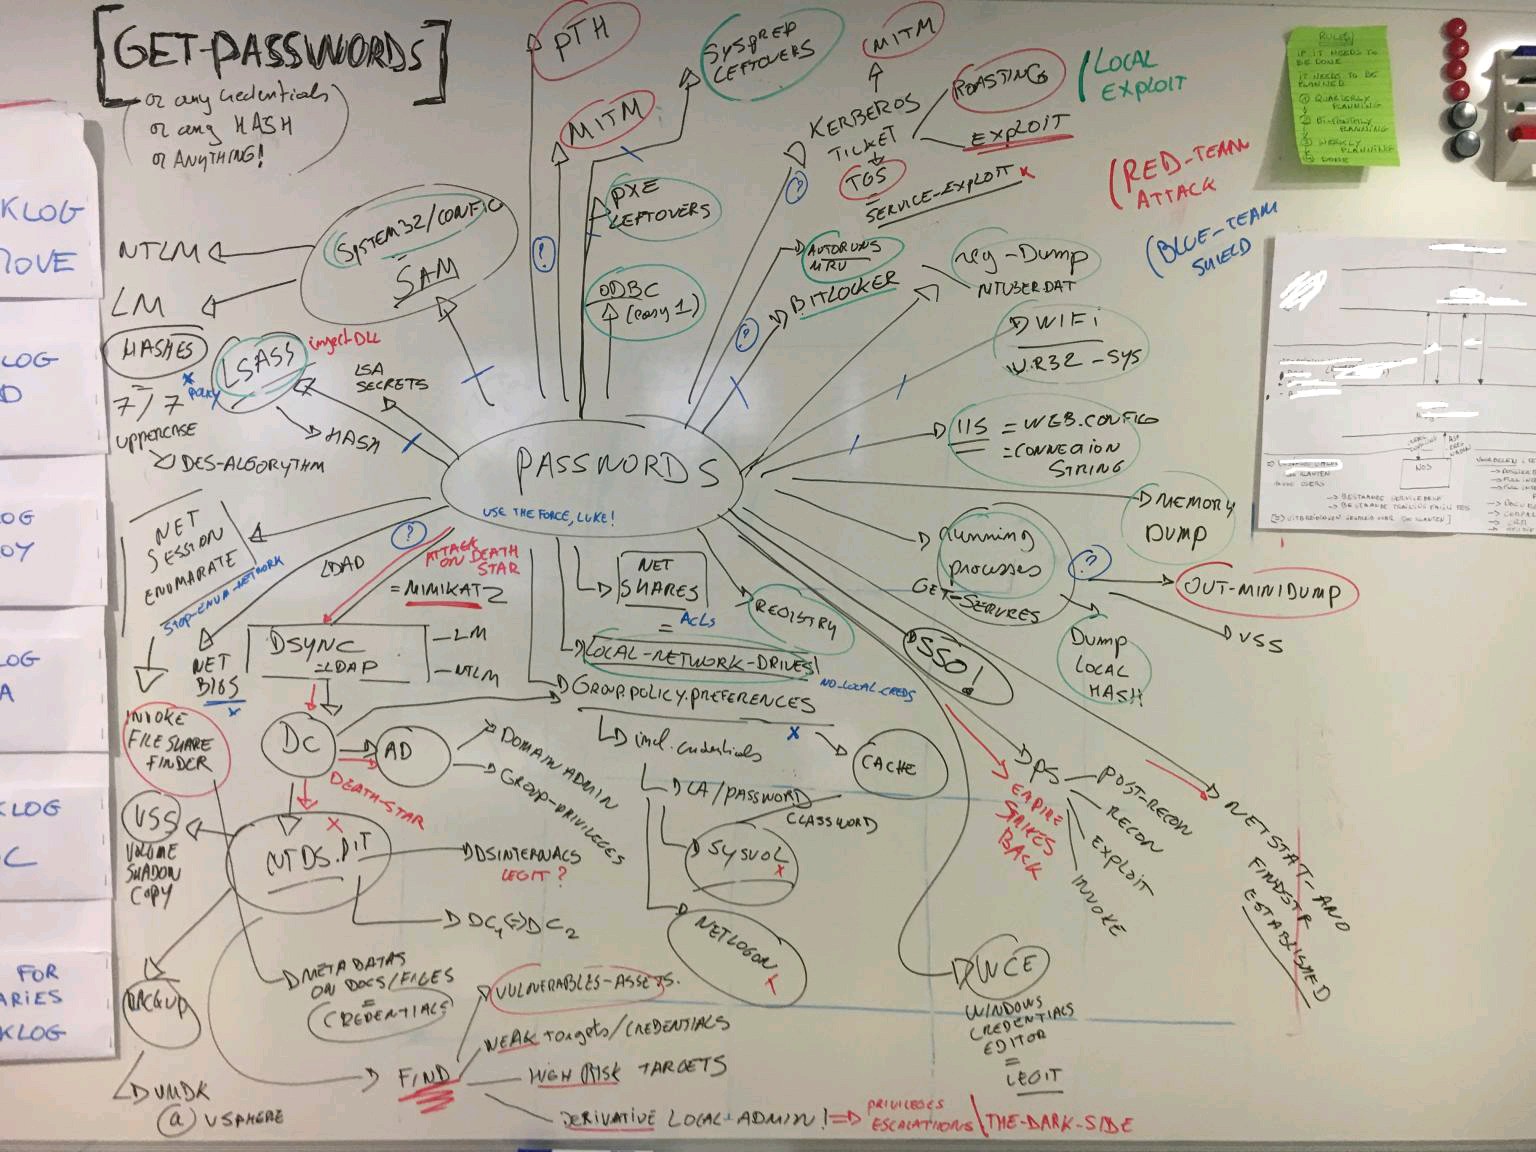 [GET-PASSWORDS]
or any credentials
or any HASH
or ANYTHING!
PTH
MITM
SYSPREP
LEFTOVERS
PXE
LEFTOVERS
ODBC
(easy 1)
MITM
KERBEROS
TICKET
ROASTING
EXPLOIT
TGS
=
SERVICE-EXPLOIT x
LOCAL
EXPLOIT
RED-TEAM
ATTACK
BLUE-TEAM
SHIELD
RULES
IF IT NEEDS TO
BE DONE
IT NEEDS TO BE
PLANNED
① QUARTERLY
PLANNING
PLANNING
③ WEEKLY
PLANNING
DONE
KLOG
MOVE
LOG
D
OG
OY
LOG
A
KLOG
C
FOR
ARIES
KLOG
SYSTEM32/CONFIG
SAM
NTLM
LM
HASHES
=
7/7
UPPERCASE
DES-ALGORYTHM
LSASS
inject DLL
x
Policy
HASH
LSA
SECRETS
?
AUTORUNS
MRU
BITLOCKER
?
?
reg-Dump
NTUSER.DAT
WIFI
WIR32-SYS
IIS = WEB.CONFIG
= CONNECTION
STRING
MEMORY
DUMP
PASSWORDS
USE THE FORCE, LUKE!
NET
SESSION
ENUMARATE
STOP-ENUM-NETWORK
?
LOAD
ATTACK
ON DEATH
STAR
= MIMIKATZ
NET
BIOS
x
DSYNC
=LDAP
-LM
-NTLM
NET
SHARES
=
ACLS
LOCAL-NETWORK-DRIVES
REGISTRY
GROUP.POLICY.PREFERENCES
NO_LOCAL_CREDS
x
incl. credentials
LA/PASSWORD
CLASSWORD
CACHE
SYSVOL
x
NETLOGON
x
Running
processes
GET-SERVICES
?
OUT-MINIDUMP
VSS
Dump
LOCAL
HASH
SSO!
EMPIRE
STRIKES
BACK
PS
POST-RECON
RECON
EXPLOIT
INVOKE
NETSTAT-ANO
FINDSTR
ESTABLISHED
WCE
WINDOWS
CREDENTIALS
EDITOR
=
LEGIT
INVOKE
FILE SHARE
FINDER
DC
AD
DOMAIN ADMIN
GROUP-PRIVILEGES
DEATH-STAR
x
NTDS.DIT
VSS
VOLUME
SHADOW
COPY
DSINTERNALS
LEGIT?
DC1 <=> DC2
BACKUP
VMDK
@ VSPHERE
METADATAS
ON DOCS/FILES
=
CREDENTIALS
FIND
VULNERABLES-ASSETS.
WEAK Targets/CREDENTIALS
HIGH RISK TARGETS
DERIVATIVE LOCAL-ADMIN! =>
PRIVILEGES
ESCALATIONS
THE-DARK-SIDE
NOS